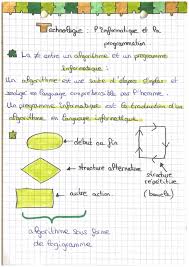 Technologie : l'Informatique et la
programmation
La ≠ entre un algorithme et un programme
informatique :
Un algorithme est une suite d'étapes simples et
rédigé en langage compréhensible par l'homme.
Un programme informatique est la traduction d'un
algorithme en langage informatique.
début ou fin
structure alternative
autre action
structure
répétitive
(boucle)
algorithme sous forme
de logigramme